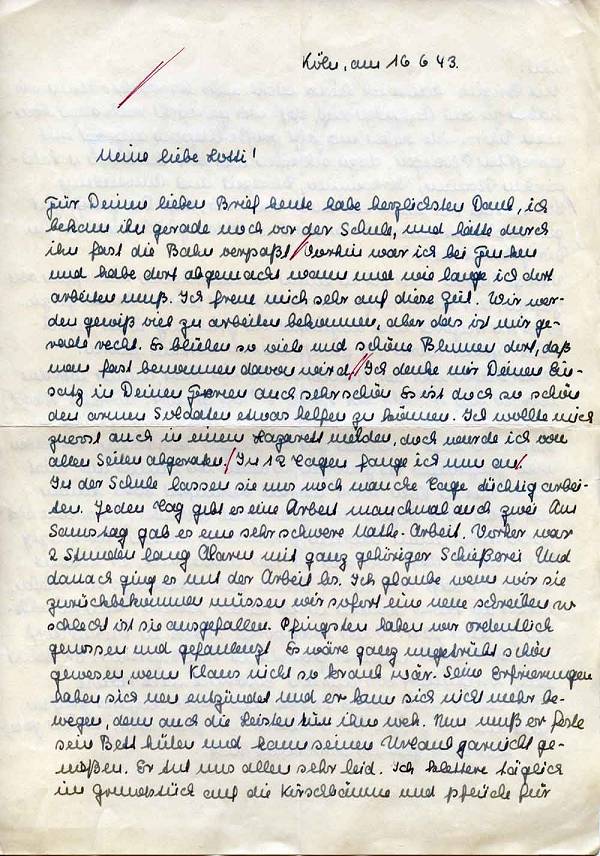 Köln, am 16 6 43.
Meine liebe Lotti!
Für Deinen lieben Brief heute habe herzlichsten Dank, ich
bekam ihn gerade noch vor der Schule, und hätte durch
ihn fast die Bahn verpaßt. Vorhin war ich bei
und habe dort abgemacht wann und wie lange ich dort
arbeiten muß. Ich freue mich sehr auf diese Zeit. Wir wer-
den gewiß viel zu arbeiten bekommen, aber das ist mir ge-
rade recht. Es blühen so viele und schöne Blumen dort, daß
man fast benommen davon wird. Ich denke mir Deinen Ein-
satz in Deinen Ferien auch sehr schön Es ist doch so schön
den armen Soldaten etwas helfen zu können. Ich wollte mich
zuerst auch in einem Lazarett melden, doch wurde ich von
allen Seiten abgeraten. In 12 Tagen fange ich nun an.
In der Schule lassen sie uns noch manche Tage tüchtig arbei-
ten. Jeden Tag gibt es eine Arbeit manchmal auch zwei Am
Samstag gab es eine sehr schwere Mathe-Arbeit. Vorher war
2 Stunden lang Alarm mit ganz gehöriger Schießerei Und
danach ging es mit der Arbeit los. Ich glaube wenn wir sie
zurückbekommen müssen wir sofort eine neue schreiben so
schlecht ist sie ausgefallen. Pfingsten haben wir ordentlich
genossen und gefaulenzt Es wäre ganz ungetrübt schön
gewesen, wenn Klaus nicht so krank wär. Seine Erfrierungen
haben sich neu entzündet und er kann sich nicht mehr be-
wegen, denn auch die Leisten tun ihm weh. Nun muß er feste
sein Bett hüten und kann seinen Urlaub garnicht ge-
nießen. Er tut uns allen sehr leid. Ich klettere täglich
im Grundstück auf die Kirschbäume und pflücke für